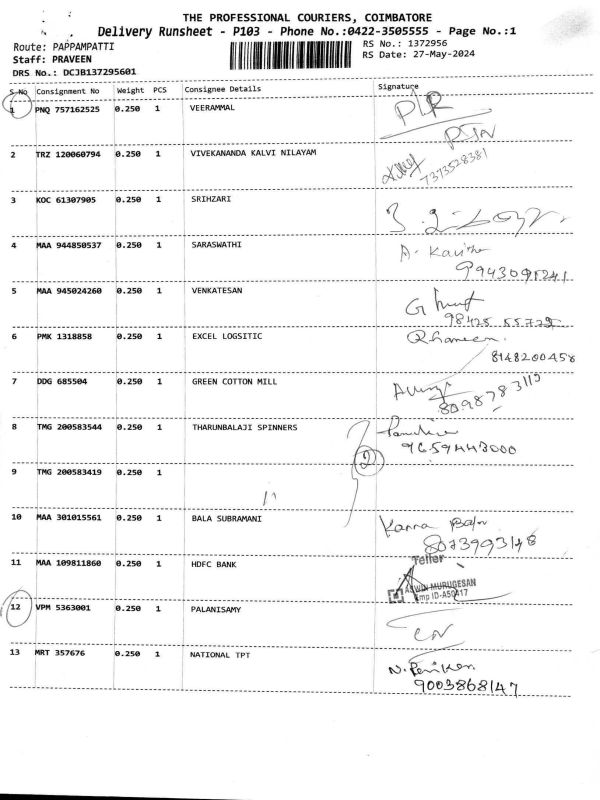 THE PROFESSIONAL COURIERS, COIMBATORE
Delivery Runsheet - P103 - Phone No.:0422-3505555 - Page No.:1
Route: PAPPAMPATTI
RS No.: 1372956
Staff: PRAVEEN
RS Date: 27-May-2024
DRS No.: DCJB137295601
S.No Consignment No Weight PCS Consignee Details Signature
1 PNQ 757162525 0.250 1 VEERAMMAL
2 TRZ 120060794 0.250 1 VIVEKANANDA KALVI NILAYAM
7373528381
3 KOC 61307905 0.250 1 SRIHZARI
4 MAA 944850537 0.250 1 SARASWATHI A. Kavitha
9943091241
5 MAA 945024260 0.250 1 VENKATESAN
98425 55722
6 PMK 1318858 0.250 1 EXCEL LOGSITIC
8148200458
7 DDG 685504 0.250 1 GREEN COTTON MILL
8098783113
8 TMG 200583544 0.250 1 THARUNBALAJI SPINNERS
2 9659443000
9 TMG 200583419 0.250 1
10 MAA 301015561 0.250 1 BALA SUBRAMANI Kanna
8073993148
11 MAA 109811860 0.250 1 HDFC BANK Teller
ASWIN MURUGESAN
Emp ID-A50417
12 VPM 5363001 0.250 1 PALANISAMY
13 MRT 357676 0.250 1 NATIONAL TPT
9003868147